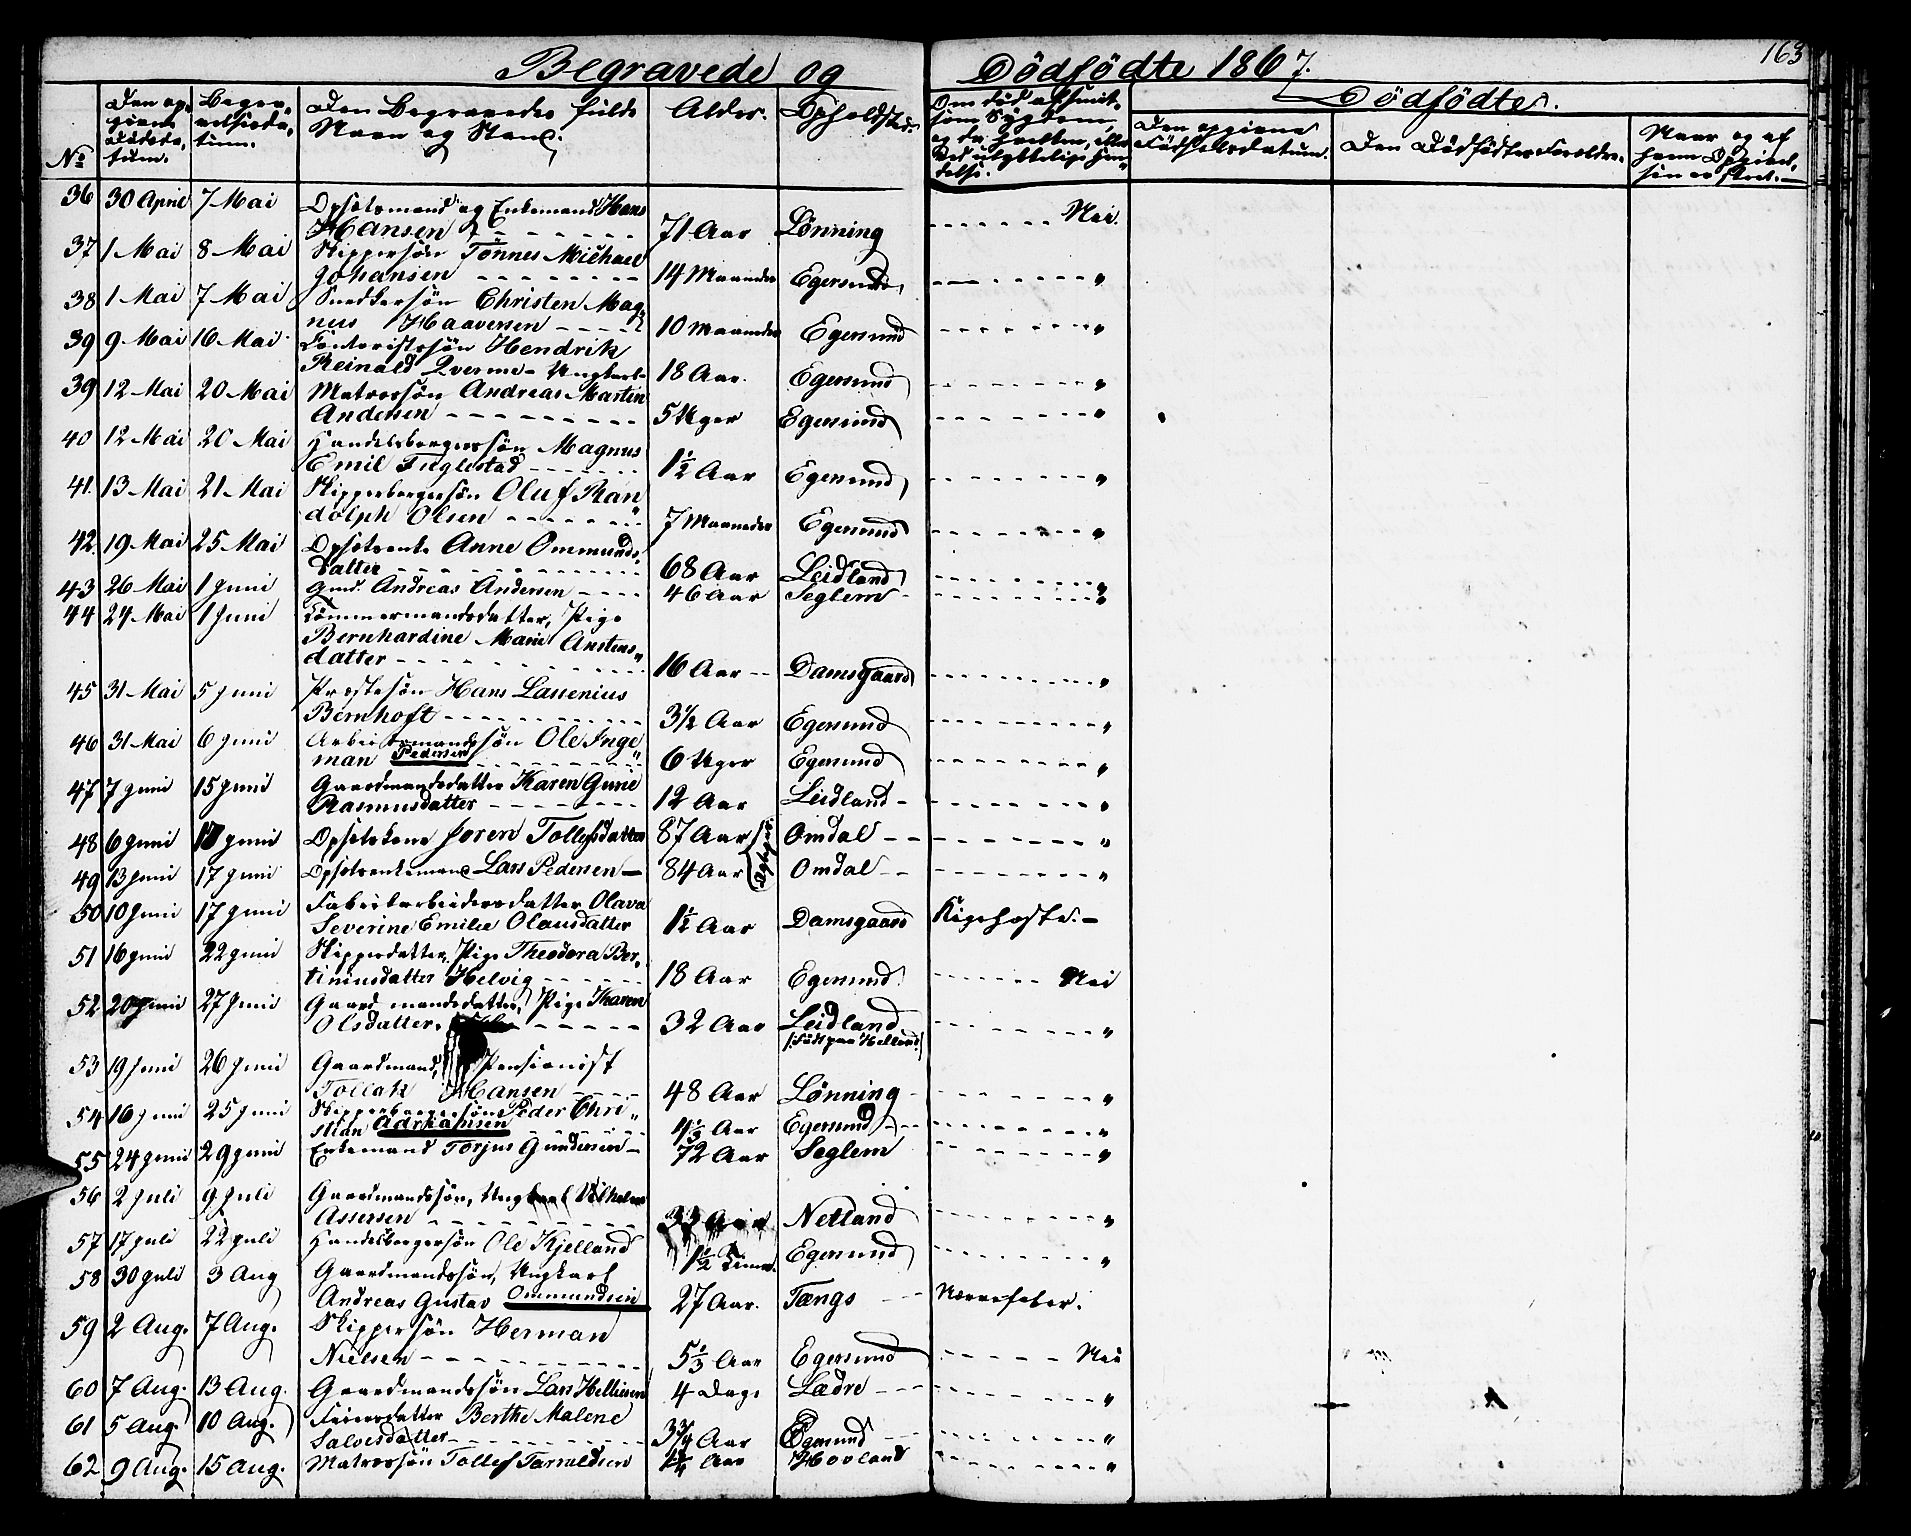 163
Begravede og Dödfödte 1867.
No
Den opgivne Dödsdatum.
Begravelsesdatum.
Den Begravedes fulde Navn og Stand.
Alder.
Opholdsted.
Om död af smitsom Sygdom, og da hvilken, eller ved ulykkelig Hændelse.
Dödfödte.
Den opgivne Födselsdatum.
Den Dödfödtes Foreldre.
Naar og af hvem Opgivelsen er skeet.
36 30 April 7 Mai Opsetsmand og Enkemand Hans
Hansen 71 Aar Lönning Nei.
37 1 Mai 8 Mai Skippersön Tönnes Michael
Johansen 14 Maaneder Egersund "
38 1 Mai 7 Mai Snedkersön Christen Mag-
nus Haaversen 10 Maaneder Egersund "
39 9 Mai 16 Mai Contoristsön Hendrik
Reinald Qverme - Ungkarl 18 Aar. Egersund "
39 12 Mai 20 Mai Matrossön Andreas Martin
Andersen 5 Uger Egersund "
40 12 Mai 20 Mai Handelsborgersön Magnus
Emil Fuglestad 1½ Aar Egersund "
41. 13 Mai 21 Mai Skipperborgersön Oluf Ran
dolph Olsen 7 Maaneder Egersund "
42. 19 Mai 25 Mai Opsetsenke Anne Ommunds
datter 68 Aar Leidland "
43 26 Mai 1 Juni Gmd. Andreas Andersen 46 Aar Seglem "
44 24 Mai 1 Juni Tömmermandsdatter, Pige
Bernhardine Marie Anstens
datter 16 Aar Damsgaard "
45 31 Mai 5 Juni Præstesön Hans Lassenius
Bernhoft 3½ Aar Egersund "
46 31 Mai 6 Juni Arbeidsmandssön Ole Inge
man Pedersen 6 Uger Egersund "
47 7 Juni 15 Juni Gaardmandsdatter Karen Gurie
Rasmusdatter 12 Aar Leidland "
48 6 Juni 17 Juni Opsetskone Joren Tollefsdatter 87 Aar Omdal "
49 13 Juni 17 Juni Opsetsenkemand Lars Pedersen 84 Aar Omdal "
Ægtepar
50 10 Juni 17 Juni Fabrikarbeidersdatter Olava
Severine Emilie Olausdatter 1½ Aar Damsgaard Kighoste.
51 16 Juni 22 Juni Skipperdatter, Pige Theodora Ber-
tiniusdatter Helvig 18 Aar Egersund Nei
52 20 Juni 27 Juni Gaardmandsdatter, Pige Karen
Olsdatter, 32 Aar Leidland "
(Födt paa Helland)
53 19 Juni 26 Juni Gaardmand, Pensionist
Tollak Hansen 48 Aar Lönning "
54 16 Juni 25 Juni Skipperborgersön Peder Chri-
stian Adriansen 4⅓ Aar Egersund "
55 24 Juni 29 Juni Enkemand Torjus Gundersen 72 Aar Seglem "
56 2 Juli 9 Juli Gaardmandssön, Ungkarl Vilhelm
Assersen 33 Aar Netland "
57 17 Juli 22 Juli Handelsborgersön Ole Kjelland 1½ Time. Egersund "
58 30 Juli 3 Aug Gaardmandssön, Ungkarl
Andreas Gustav Ommundsen 27 Aar. Tængs Nervefeber.
59 2 Aug. 7 Aug. Skippersön Herman
Nielsen 5⅓ Aar Egersund Nei
60 7 Aug. 13 Aug. Gaardmandssön Lars Helliesen 4 Dage Lædre "
61 5 Aug. 10 Aug. Feiersdatter Berthe Malene
Salvesdatter 3¾ Aar Egersund "
62 9 Aug. 15 Aug. Matrossön Tollef Tarraldsen Aar Hovland "